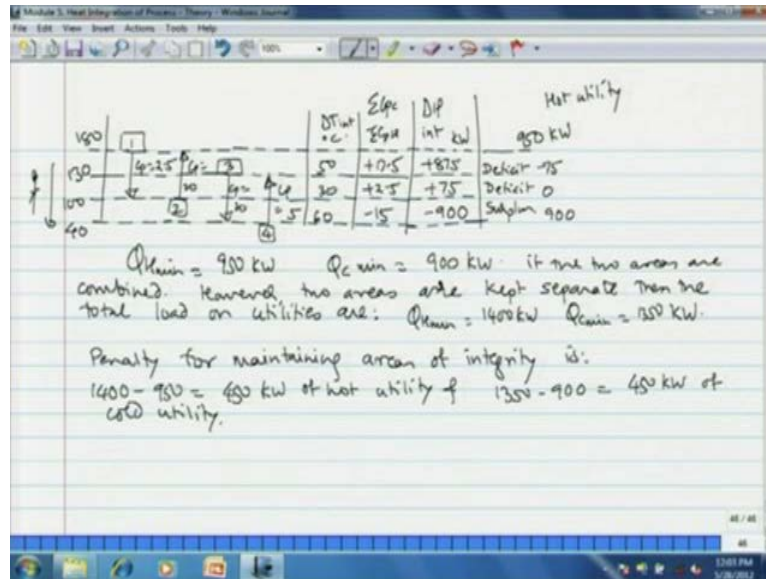 Module 5. Heat Integration of Process - Theory - Windows Journal
File Edit View Insert Actions Tools Help
100%
Hot utility
DTint °C. ΣCpc ΣCpH DHint kW
950 kW
180 1
Cp=2.5 Cp= 3 50 +17.5 +875 Deficit -75
130 20 Cp= Cp 30 +2.5 +75 Deficit 0
100 2 20 =5 60 -15 -900 Surplus 900
40 4
QHmin = 950 kW QC min = 900 kW. if the two areas are
combined. However two areas are kept separate then the
total load on utilities are: QHmin = 1400 kW QCmin = 1350 kW.
Penalty for maintaining areas of integrity is:
1400 - 950 = 450 kW of hot utility & 1350 - 900 = 450 kW of
cold utility.
46 / 46
46
12:03 PM
5/28/2012